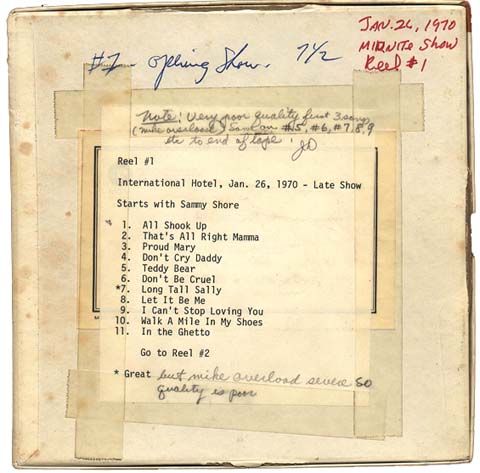 #1 opening Show. 7 1/2
JAN. 26, 1970
MIDNITE Show
Reel #1
Note! Very poor quality first 3 songs
(mike overload) Same on #5, #6, #7, 8, 9
etc to end of tape! JD
Reel #1
International Hotel, Jan. 26, 1970 - Late Show
Starts with Sammy Shore
1. All Shook Up
2. That's All Right Mamma
3. Proud Mary
4. Don't Cry Daddy
5. Teddy Bear
6. Don't Be Cruel
*7. Long Tall Sally
8. Let It Be Me
9. I Can't Stop Loving You
10. Walk A Mile In My Shoes
11. In the Ghetto
Go to Reel #2
* Great but mike overload severe so
quality is poor